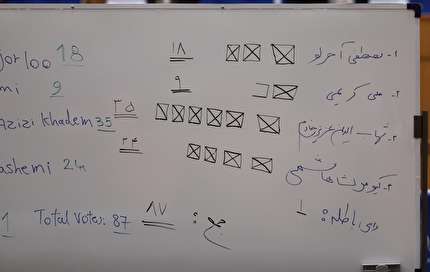 ۱- مصطفی آجرلو ۱۸ jorloo 18
۲- علی کریمی ۹ mi 9
۳- شهاب الدین عزیزی خادم ۳۵ Azizi khadem 35
۴- کیومرث هاشمی ۲۴ ashemi 24
رای باطله: ۱
جمع: ۸۷ Total Votes: 87 1